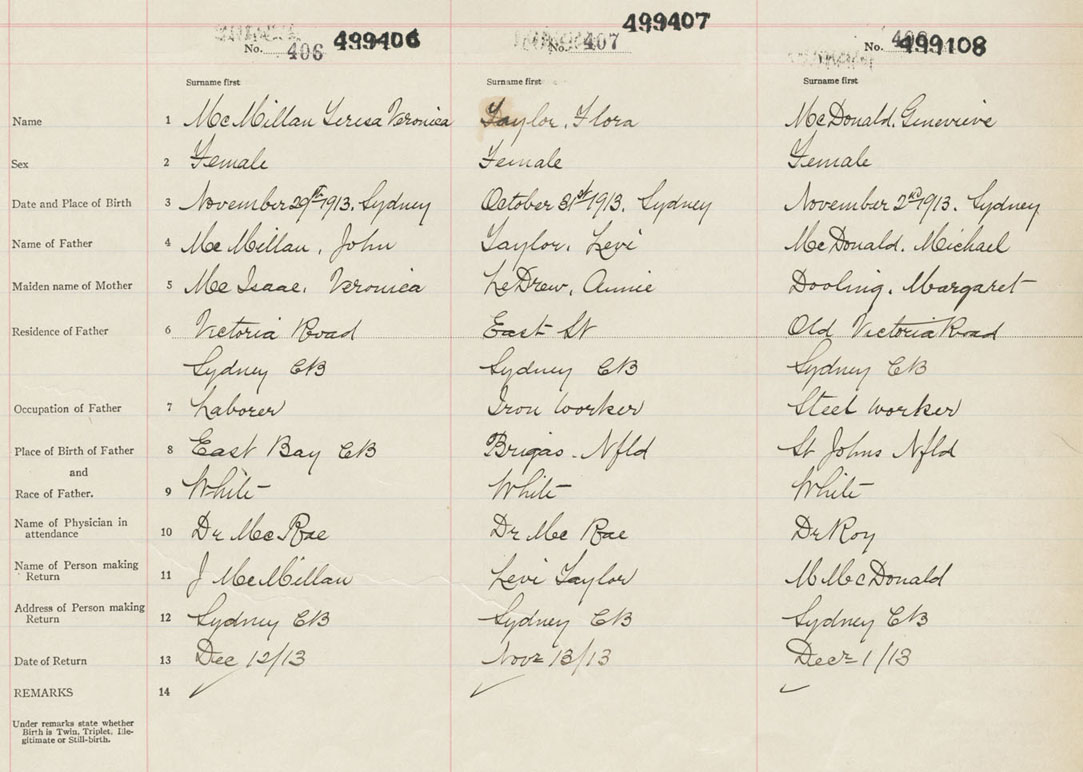 499406 499407
No. 406 No. 407 No. 499108
Surname first Surname first Surname first
Name 1 McMillan Teresa Veronica Taylor, Flora McDonald, Genevieve
Sex 2 Female Female Female
Date and Place of Birth 3 November 29th 1913. Sydney October 31st 1913. Sydney November 2nd 1913. Sydney
Name of Father 4 McMillan, John Taylor, Levi McDonald, Michael
Maiden name of Mother 5 McIsaac, Veronica LeDrew, Annie Dooling, Margaret
Residence of Father 6 Victoria Road East St Old Victoria Road
Sydney CB Sydney CB Sydney CB
Occupation of Father 7 Laborer Iron worker Steel worker
Place of Birth of Father 8 East Bay CB Brigas. Nfld St Johns Nfld
and
Race of Father. 9 White White White
Name of Physician in
attendance 10 Dr McRae Dr McRae Dr Roy
Name of Person making
Return 11 J McMillan Levi Taylor M McDonald
Address of Person making
Return 12 Sydney CB Sydney CB Sydney CB
Date of Return 13 Dec 12/13 Novr 13/13 Decr 1/13
REMARKS 14
Under remarks state whether
Birth is Twin, Triplet, Ille-
gitimate or Still-birth.